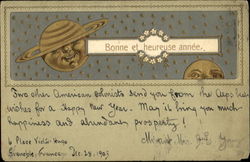 Bonne et heureuse année.
Two other American tourists send you from the Alps best
wishes for a Happy New Year. May it bring you much
happiness and abundant prosperity!
Mr. and Mrs.
6 Place Victor Hugo
Grenoble, France. Dec. 28, 1903